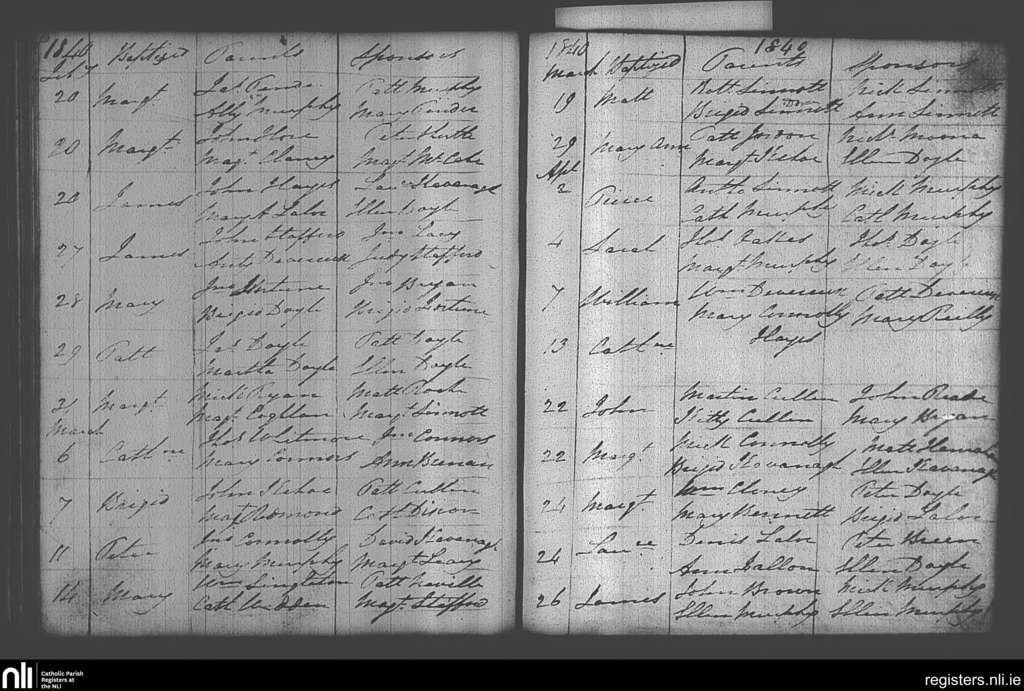 1840 Baptized Parents Sponsors
Feby
20 Margt. Jas. Patt Murphy
Ally Murphy Mary
20 Margt. John Peter
Margt. Clancy Margt. McCabe
20 James John Hayes Lau. Kavanagh
Margt. Lalor Ellen Doyle
27 James John Stafford Jno Lacy
Devereux Judy Stafford
28 Mary Jno Jno Bryan
Brigid Doyle Brigid
29 Patt Jas. Doyle Patt Doyle
Martha Doyle Ellen Doyle
Margt. Mick Ryan Matt Roche
Margt. Coghlan Margt. Sinnott
March
6 Cathne Thos Whitmore Jno Connors
Mary Connors Ann
7 Brigid John Kehoe Patt Cullen
Margt. Redmond Cath Dixon
11 Peter Jno Connolly David Kavanagh
Mary Murphy Margt. Leary
14 Mary Wm Singleton Patt Neville
Cath Margt. Stafford
1840 1840
March Baptized Parents Sponsors
19 Matt Sinnott Nick Sinnott
Brigid Sinnott Ann Sinnott
29 Mary Ann Patt Jordon Nick
Margt. Kehoe Ellen Doyle
Apl
2 Pierce Sinnott Mick Murphy
Cath Murphy Cath Murphy
4 Sarah Thos Oakes Thos. Doyle
Margt. Murphy Ellen Doyle
7 William Wm Devereux Patt Devereux
Mary Connolly Mary Reilly
13 Cathne Hayes
22 John Martin Cullen John
Kitty Cullen Mary Bryan
22 Margt. Mick Connolly Matt
Brigid Kavanagh Ellen Kavanagh
24 Margt. Wm Cloney Peter Doyle
Mary Bennett Brigid Lalor
24 Laurce Denis Lalor Peter Breen
Ann Fallon Ellen Doyle
26 James John Brown Mick Murphy
Ellen Murphy Ellen Murphy
nli
Catholic Parish
Registers at
the NLI
registers.nli.ie